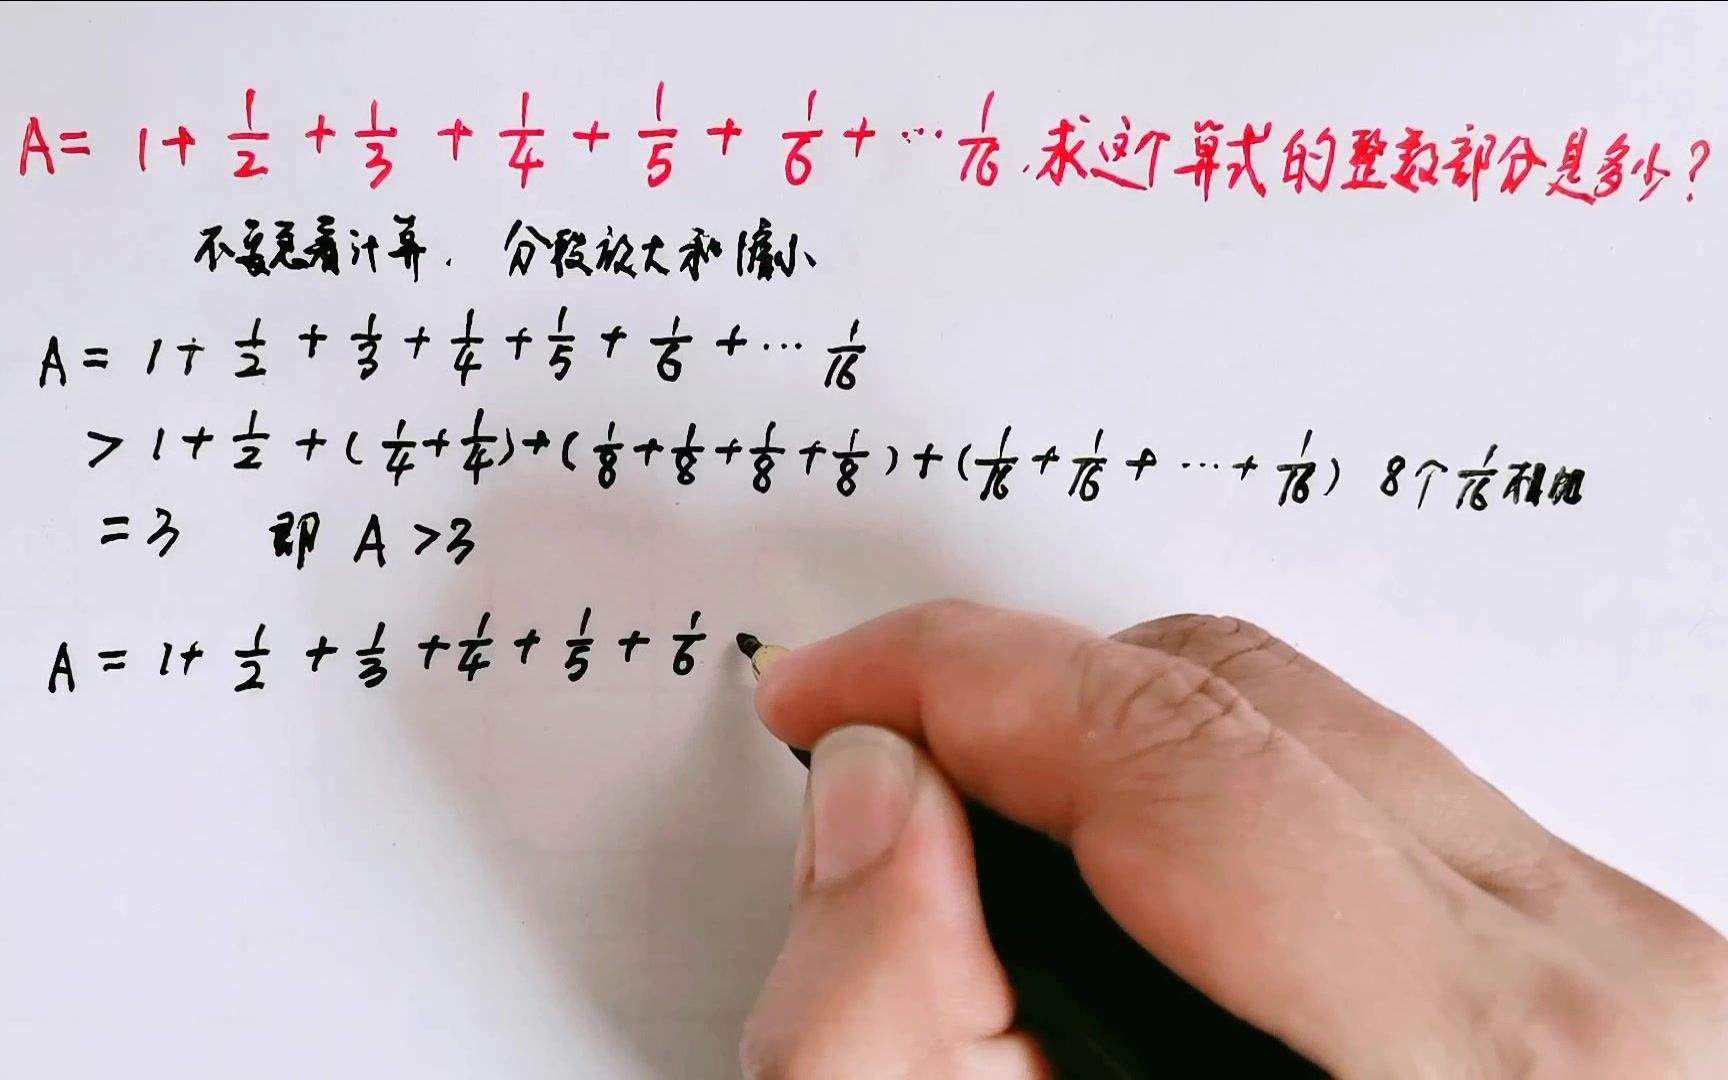 A = 1 + 1/2 + 1/3 + 1/4 + 1/5 + 1/6 + ··· 1/16 . 求这个算式的整数部分是多少?
不要急着计算. 分段放大和缩小
A = 1 + 1/2 + 1/3 + 1/4 + 1/5 + 1/6 + ··· 1/16
> 1 + 1/2 + (1/4 + 1/4) + (1/8 + 1/8 + 1/8 + 1/8) + (1/16 + 1/16 + ··· + 1/16) 8个1/16相加
= 3 即 A > 3
A = 1 + 1/2 + 1/3 + 1/4 + 1/5 + 1/6